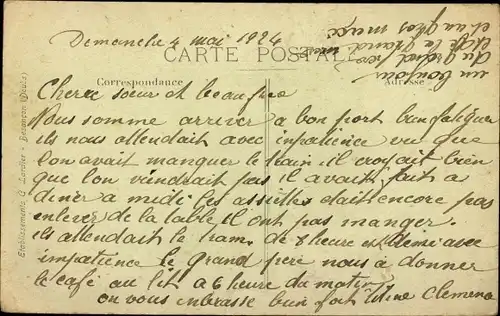 Demanche 4 mai 1924
un bonjour
du grand pere
et un gros
CARTE POSTALE
Correspondance
Adresse
Cheree sœur et beaufrere
Nous somme arriver a bon port bien fatiguer
ils nous attendait avec impatience vu que
lon avait manquer le train il croyait bien
que lon viendrait pas il avait fait a
diner a midi les assiettes etait encore pas
enlever de la table il ont pas manger
ils attendait le tram de 8 heure et demi avec
impatience le grand pere nous a donner
le café au lit a 6 heure du matin
on vous embrasse bien fort Clemence
Etablissements C. Lardier - Besançon (Doubs)